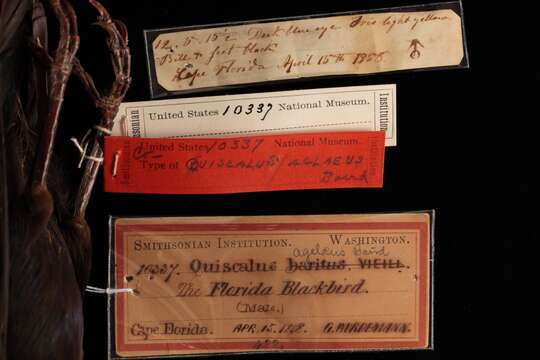 12. 5. 15½ Dark blue eye Iris light yellow
Bill & feet black
Cape Florida April 15th 1858 ♂
United States 10337 National Museum.
United States 10337 National Museum.
Type of QUISCALUS AGLAEUS
Baird
SMITHSONIAN INSTITUTION. WASHINGTON.
agelaus Baird
10337. Quiscalus baritus, VIEILL.
The Florida Blackbird.
(Male.)
Cape Florida. APR. 15. 1858. G. WURDEMANN.